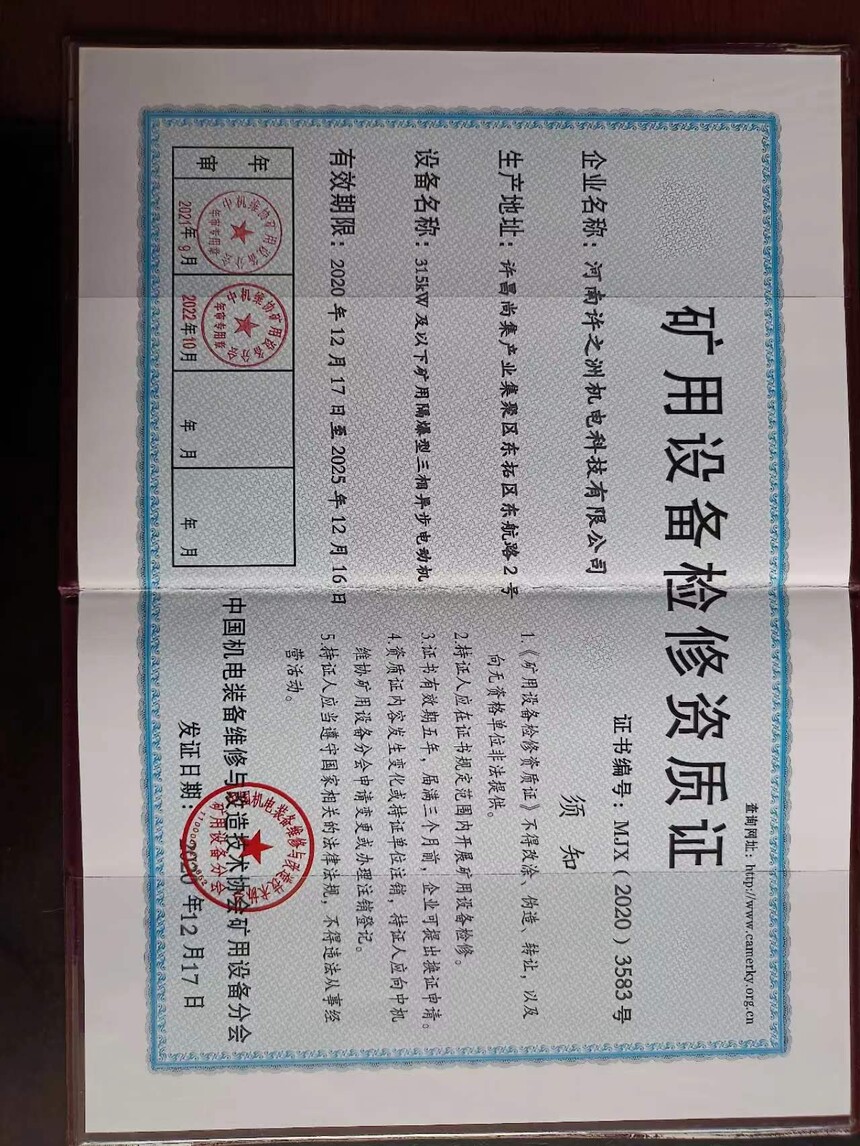 查询网址：http://www.camerky.org.cn
矿用设备检修资质证
证书编号：MJX（2020）3583号
企业名称：河南许之洲机电科技有限公司
生产地址：许昌尚集产业集聚区东拓区东航路2号
设备名称：315kW及以下矿用隔爆型三相异步电动机
有效期限：2020年12月17日至2025年12月16日
年审
2021年9月
2022年10月
年 月
年 月
中机维协矿用设备分会
年审专用章
中机维协矿用设备分会
年审专用章
须知
1.《矿用设备检修资质证》不得改涂、伪造、转让，以及
向无资格单位非法提供。
2.持证人应在证书规定范围内开展矿用设备检修。
3.证书有效期五年，届满三个月前，企业可提出换证申请。
4.资质证内容发生变化或持证单位注销，持证人应向中机
维协矿用设备分会申请变更或办理注销登记。
5.持证人应当遵守国家相关的法律法规，不得违法从事经
营活动。
中国机电装备维修与改造技术协会矿用设备分会
发证日期：2020年12月17日
矿用设备分会